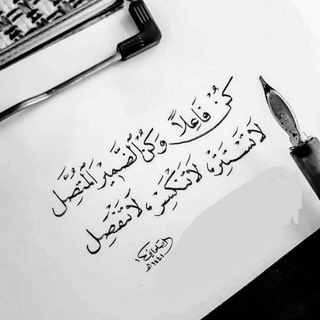 كُنْ فَاعِلاً وَكُنِ الضَّمِيرَ الْمُتَّصِل
لَا تَسْتَتِرْ، لَا تَنْكَسِرْ، لَا تَنْفَصِل